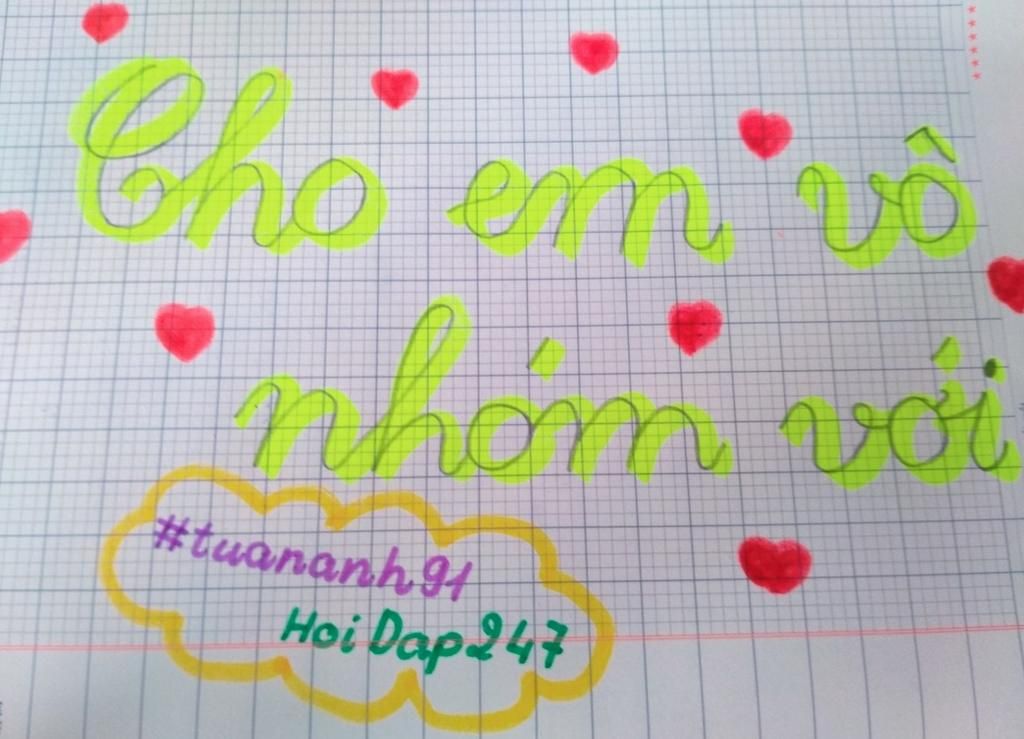 Cho em vô
nhóm với
#tuananh91
HoiDap247